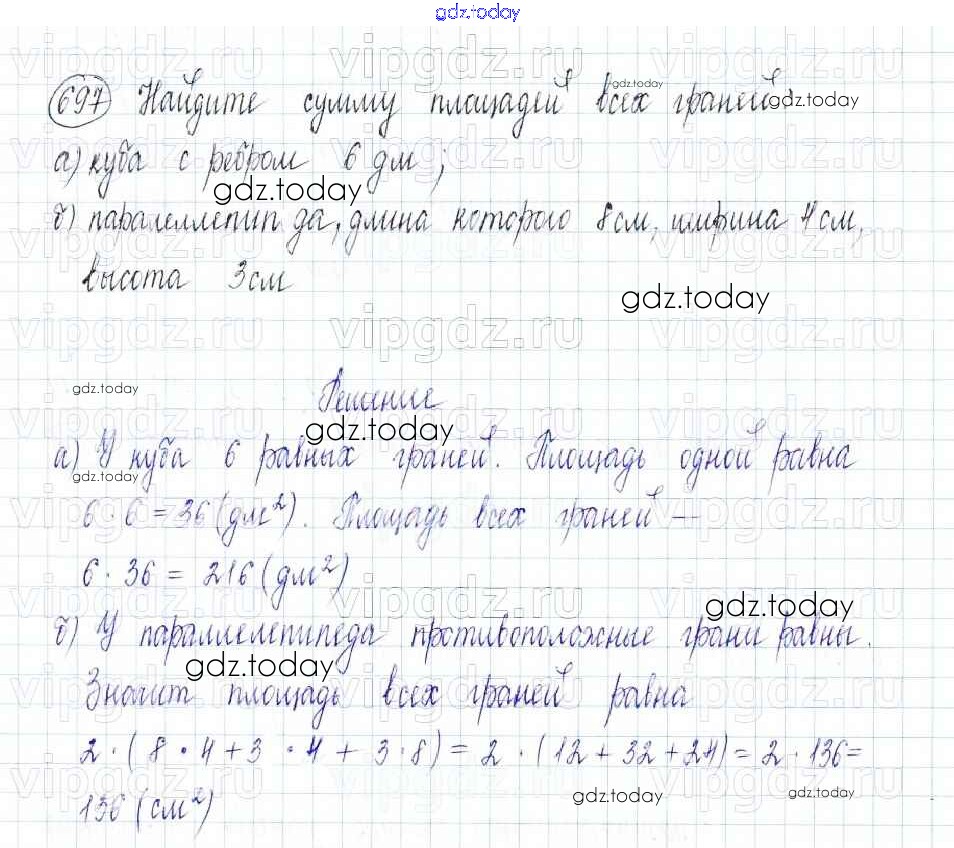 gdz.today
697 Найдите сумму площадей всех граней:
а) куба с ребром 6 дм;
б) паралеллепипеда, длина которого 8 см, ширина 4 см,
высота 3 см
Решение
а) У куба 6 равных граней. Площадь одной равна
6 · 6 = 36 (дм²). Площадь всех граней —
6 · 36 = 216 (дм²)
б) У параллелепипеда противоположные грани равны.
Значит площадь всех граней равна
2 · ( 8 · 4 + 3 · 4 + 3 · 8) = 2 · (12 + 32 + 24) = 2 · 136 =
136 (см²)